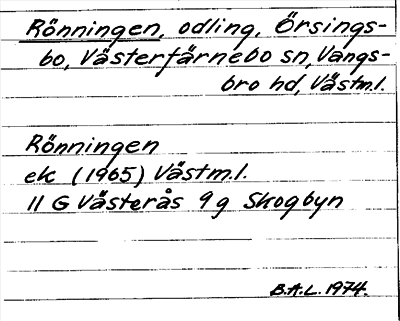 Rönningen, odling, Örsings-
bo, Västerfärnebo sn, Vangs-
bro hd, Västml.
Rönningen
ek (1965) Västml.
11 G Västerås 9g Skogbyn
B.A.L. 1974.